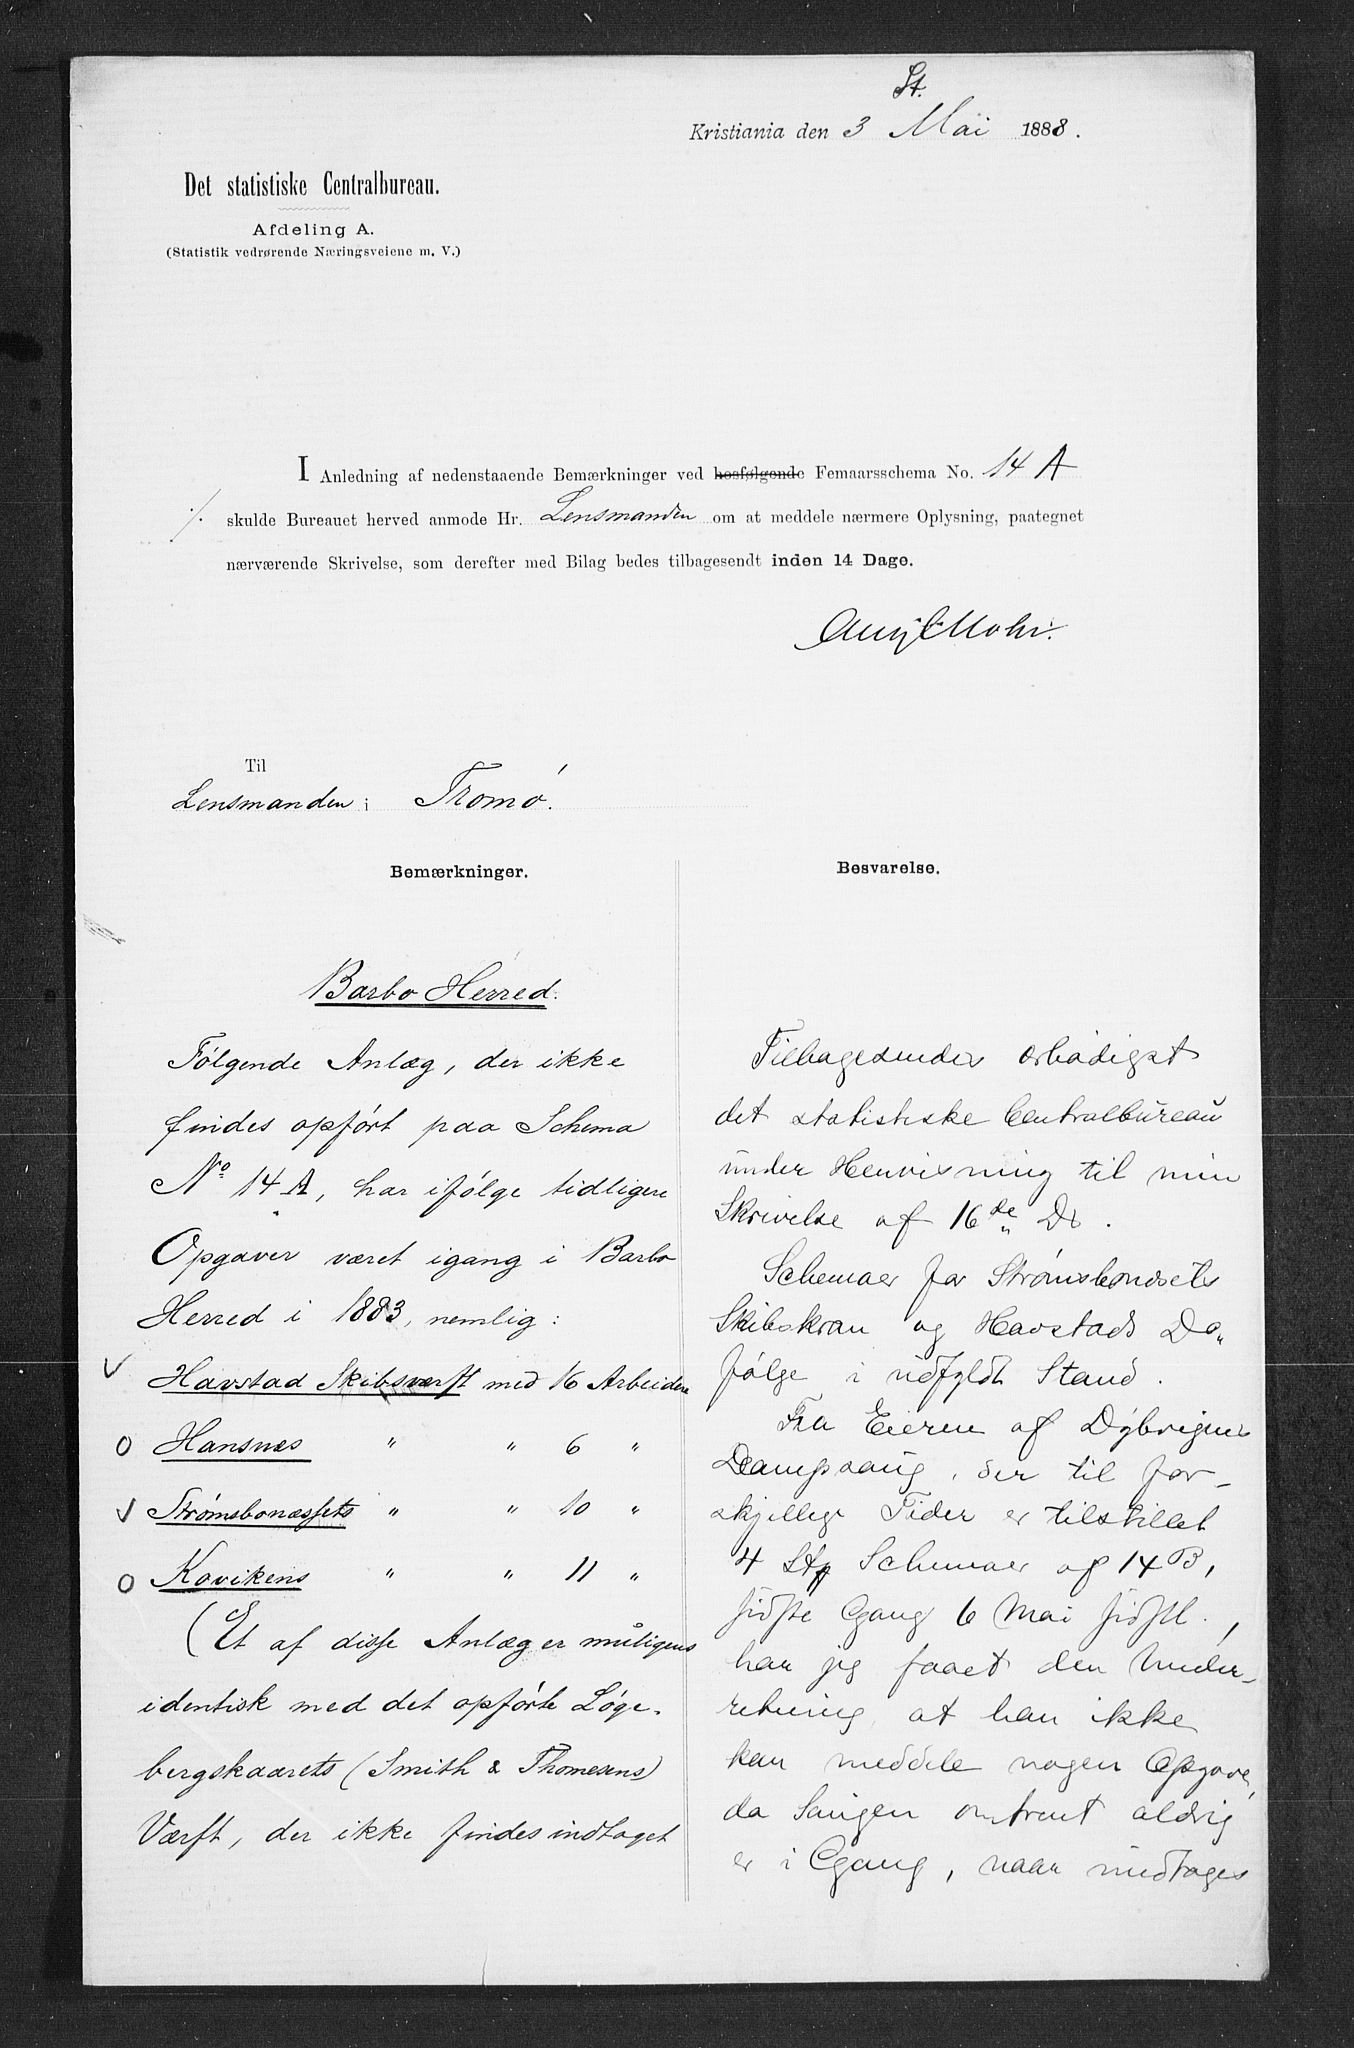 St.
Kristiania den 3 Mai 1888.
Det statistiske Centralbureau.
Afdeling A.
(Statistik vedrørende Næringsveiene m. V.)
I Anledning af nedenstaaende Bemærkninger ved hosfølgende Femaarsschema No. 14 A
./. skulde Bureauet herved anmode Hr. Lensmanden om at meddele nærmere Oplysning, paategnet
nærværende Skrivelse, som derefter med Bilag bedes tilbagesendt inden 14 Dage.
Mohr.
Til
Lensmanden i Tromø.
Bemærkninger.
Barbo Herred.
Følgende Anlæg, der ikke
findes opført paa Schema
No 14 A, har ifølge tidligere
Opgaver været igang i Barbo
Herred i 1883, nemlig:
Havstad Skibsværft med 16 Arbeidere
Hansnæs " " 6 "
Strømsbonæssets " " 10 "
Kovikens " " 11 "
(Et af disse Anlæg er muligens
identisk med det opførte Løge-
bergskaarets (Smith & Thomesens)
Værft, der ikke findes indtaget
Besvarelse.
Tilbagesendes ærbødigst
det statistiske Centralbureau
under Henvisning til min
Skrivelse af 16de Ds.
Schemaer for Strømsbonæsets
Skibskran og Havstads Do
følge i udfyldt Stand.
Fra Eieren af Dybvigens
Dampsaug, der til for-
skjellige Tider er tilstillet
4 St Schemaer af 14 B,
sidste Gang 6 Mai sidstl.,
har jeg faaet den Under-
retning, at han ikke
kan meddele nogen Opgave,
da Saugen omtrent aldrig
er i Gang, naar undtages